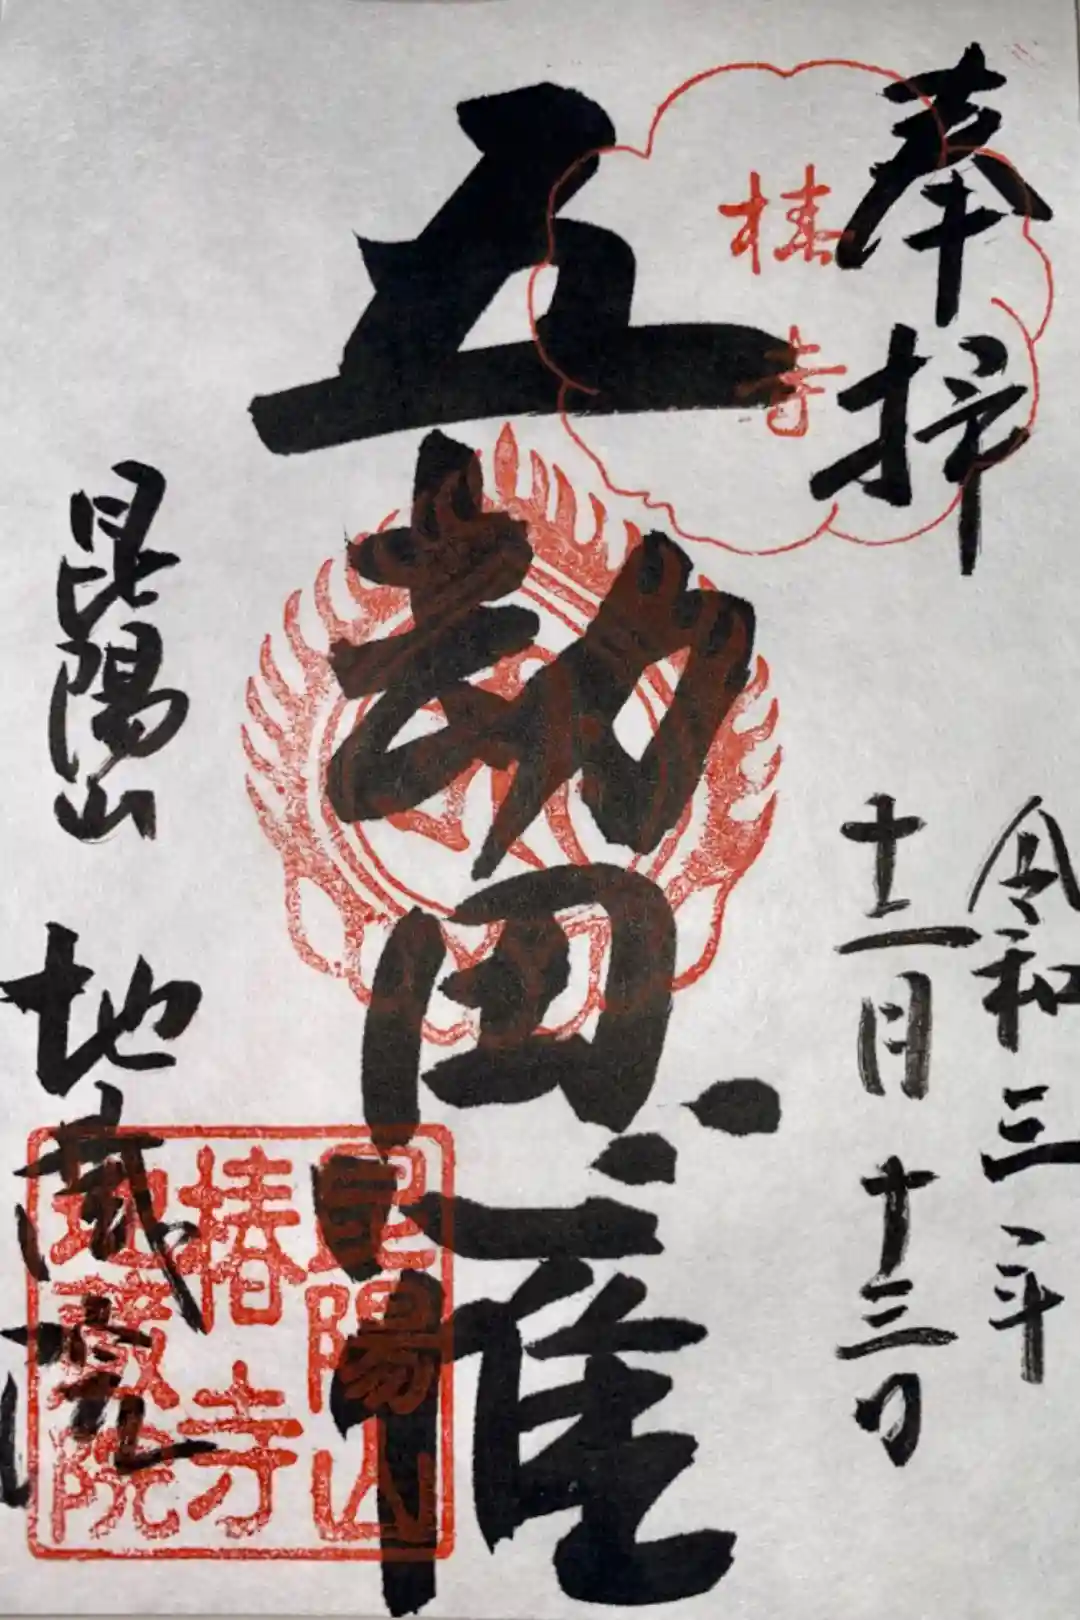 奉拝
椿寺
令和三年
十二月十三日
五劫思惟
昆陽山 地蔵院
昆陽山
椿寺
地蔵院